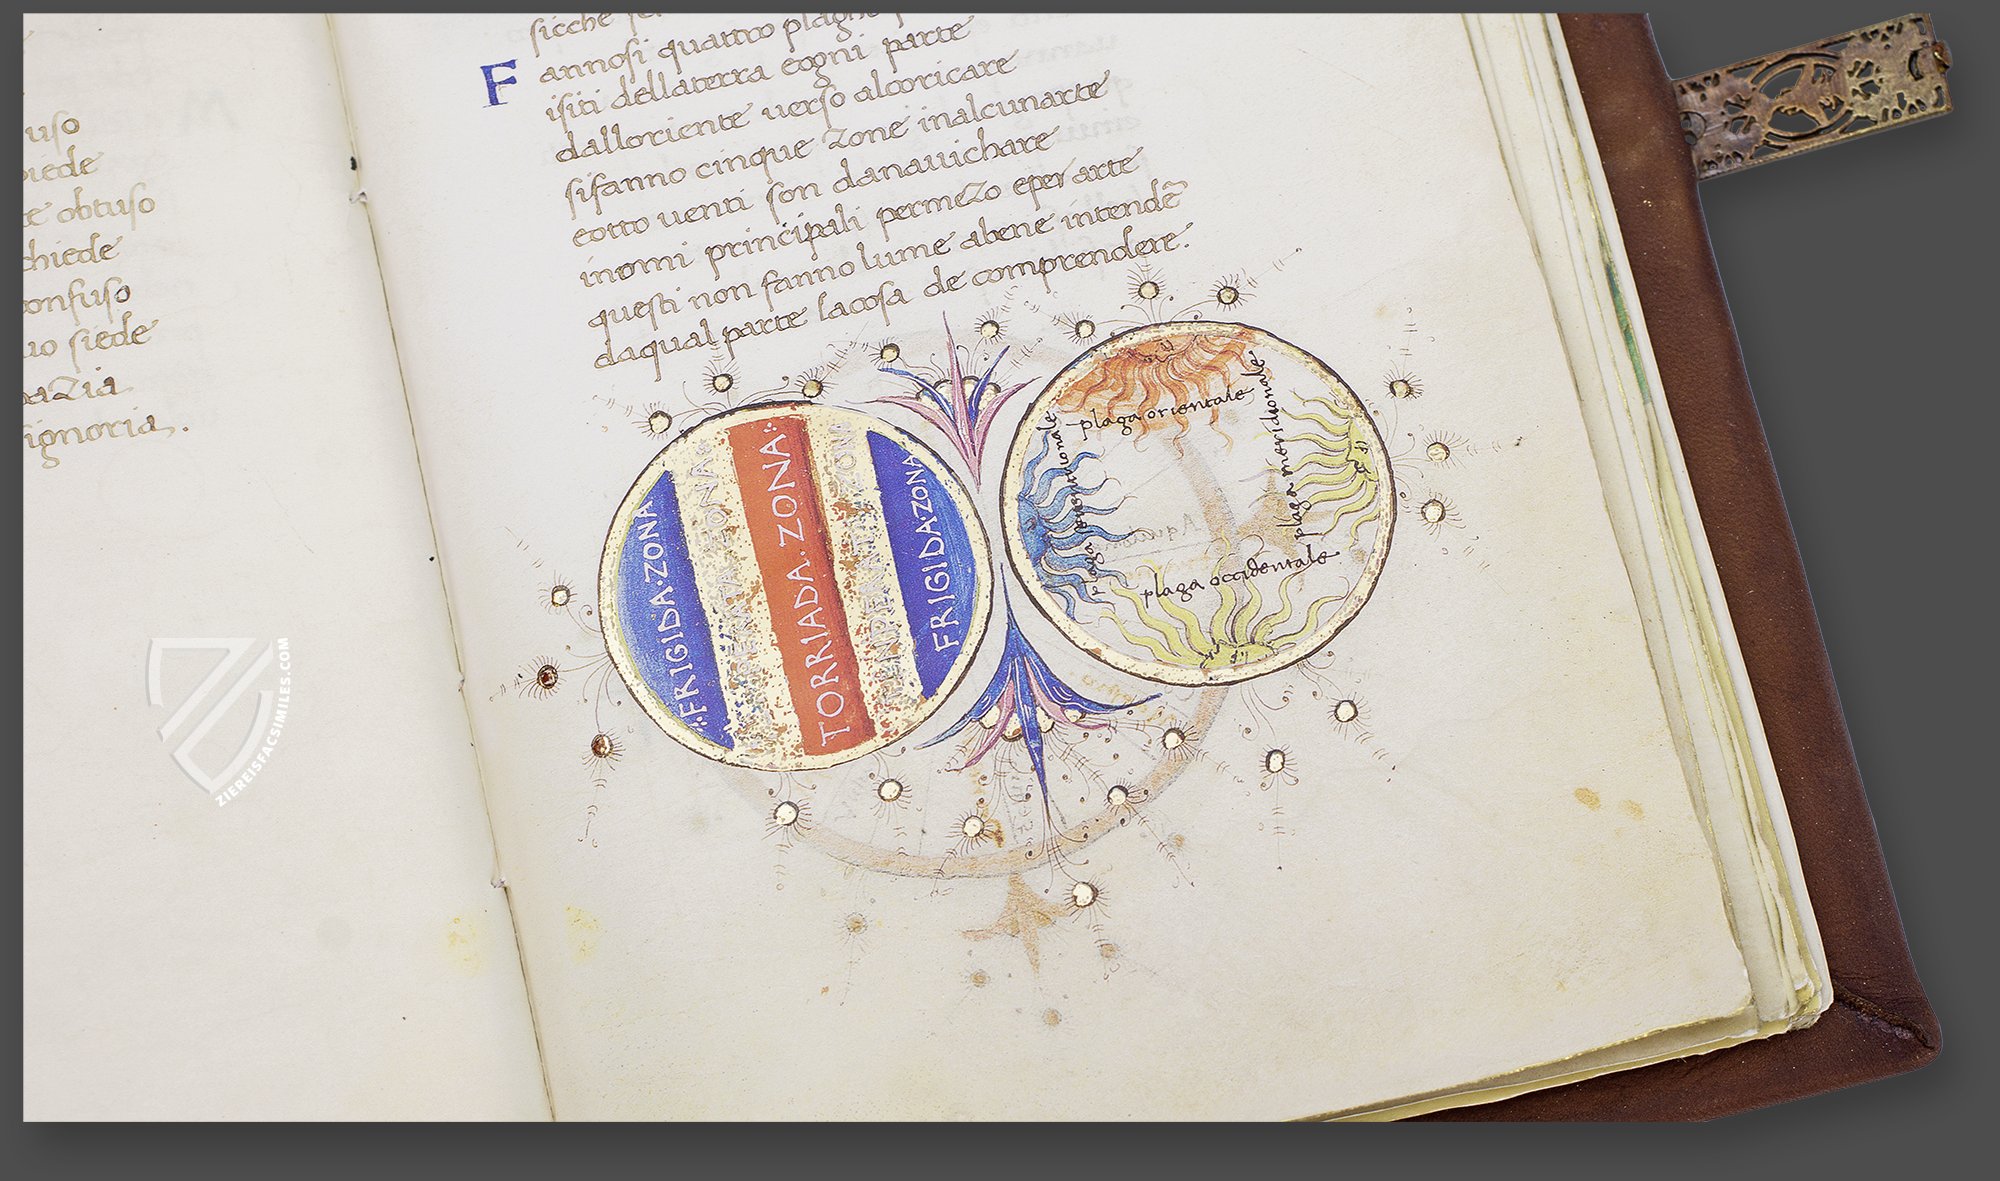 uso
siede
te obtuso
chiede
confuso
uo siede
pazia
signoria.
sicche
F
annosi quattro plaghe
isiti dellaterra eogni parte
dalloriente uerso alcoricare
sifanno cinque zone inalcunarte
eotto uenti son danauichare
inomi principali permezo eper arte
questi non fanno lume abene intendē
daqual parte lacosa de comprendere.
FRIGIDA·ZONA
ZONA
TORRIADA·ZONA
ZONA
FRIGIDA·ZONA
plaga orientale
plaga meridionale
plaga
plaga occidentale
ZIEREISFACSIMILES.COM